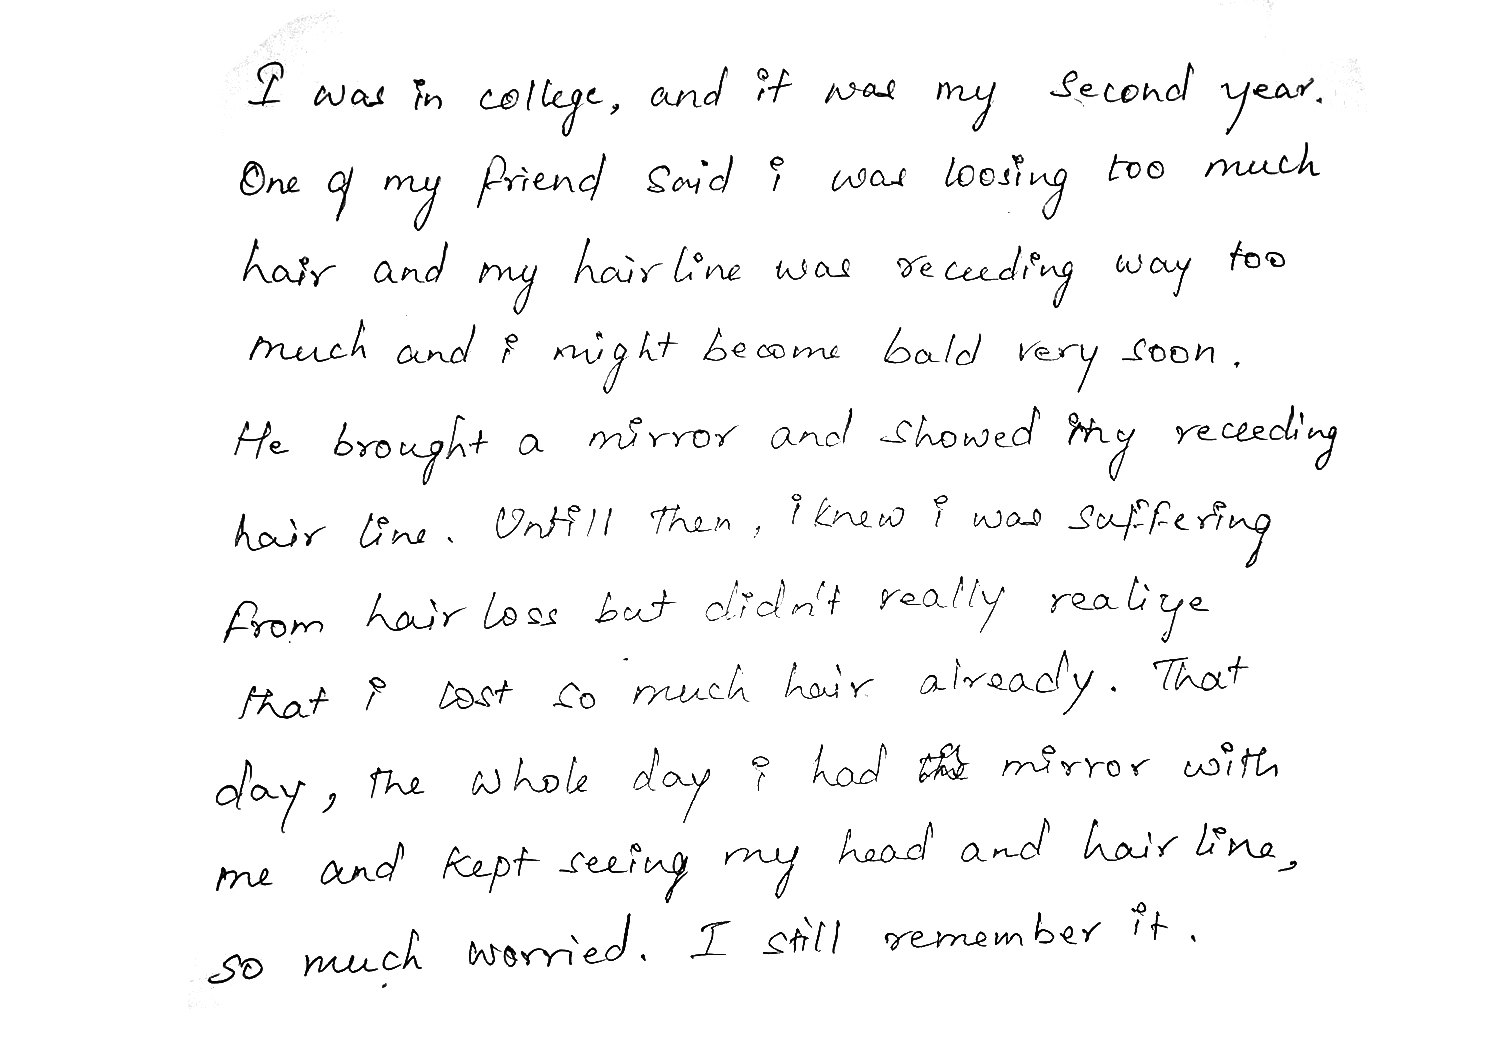 I was in college, and it was my second year.
One of my friend said i was loosing too much
hair and my hair line was receeding way too
much and i might become bald very soon.
He brought a mirror and showed my receeding
hair line. Untill then, i knew i was suffering
from hair loss but didn't really realize
that i lost so much hair already. That
day, the whole day i had the mirror with
me and kept seeing my head and hair line,
so much worried. I still remember it.